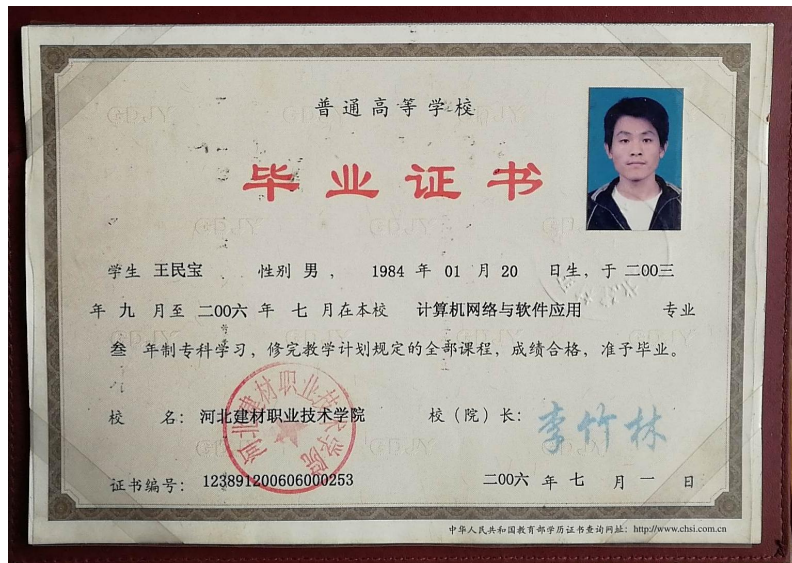 普通高等学校
毕业证书
学生 王民宝 性别 男 ， 1984 年 01 月 20 日生，于 二〇〇三
年 九 月至 二〇〇六 年 七 月在本校 计算机网络与软件应用 专业
叁 年制专科学习，修完教学计划规定的全部课程，成绩合格，准予毕业。
校 名：河北建材职业技术学院 校（院）长：李竹林
河北建材职业技术学院
证书编号：123891200606000253 二〇〇六 年 七 月 一 日
中华人民共和国教育部学历证书查询网址：http://www.chsi.com.cn
GDJY
GDJY
GDJY